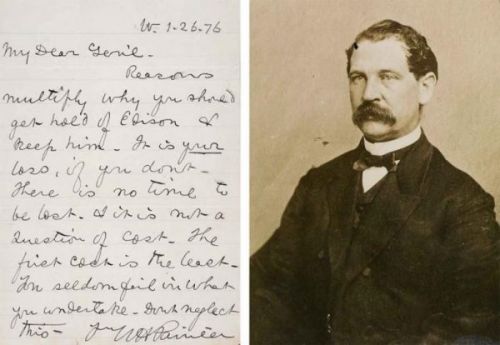 W. 1-26-76
My Dear Genl.
Reasons
multiply why you should
get hold of Edison &
keep him - It is your
loss, if you dont -
There is no time to
be lost. & it is not a
question of cost - The
first cost is the least -
You seldom fail in what
you undertake - Dont neglect
this - UH Painter